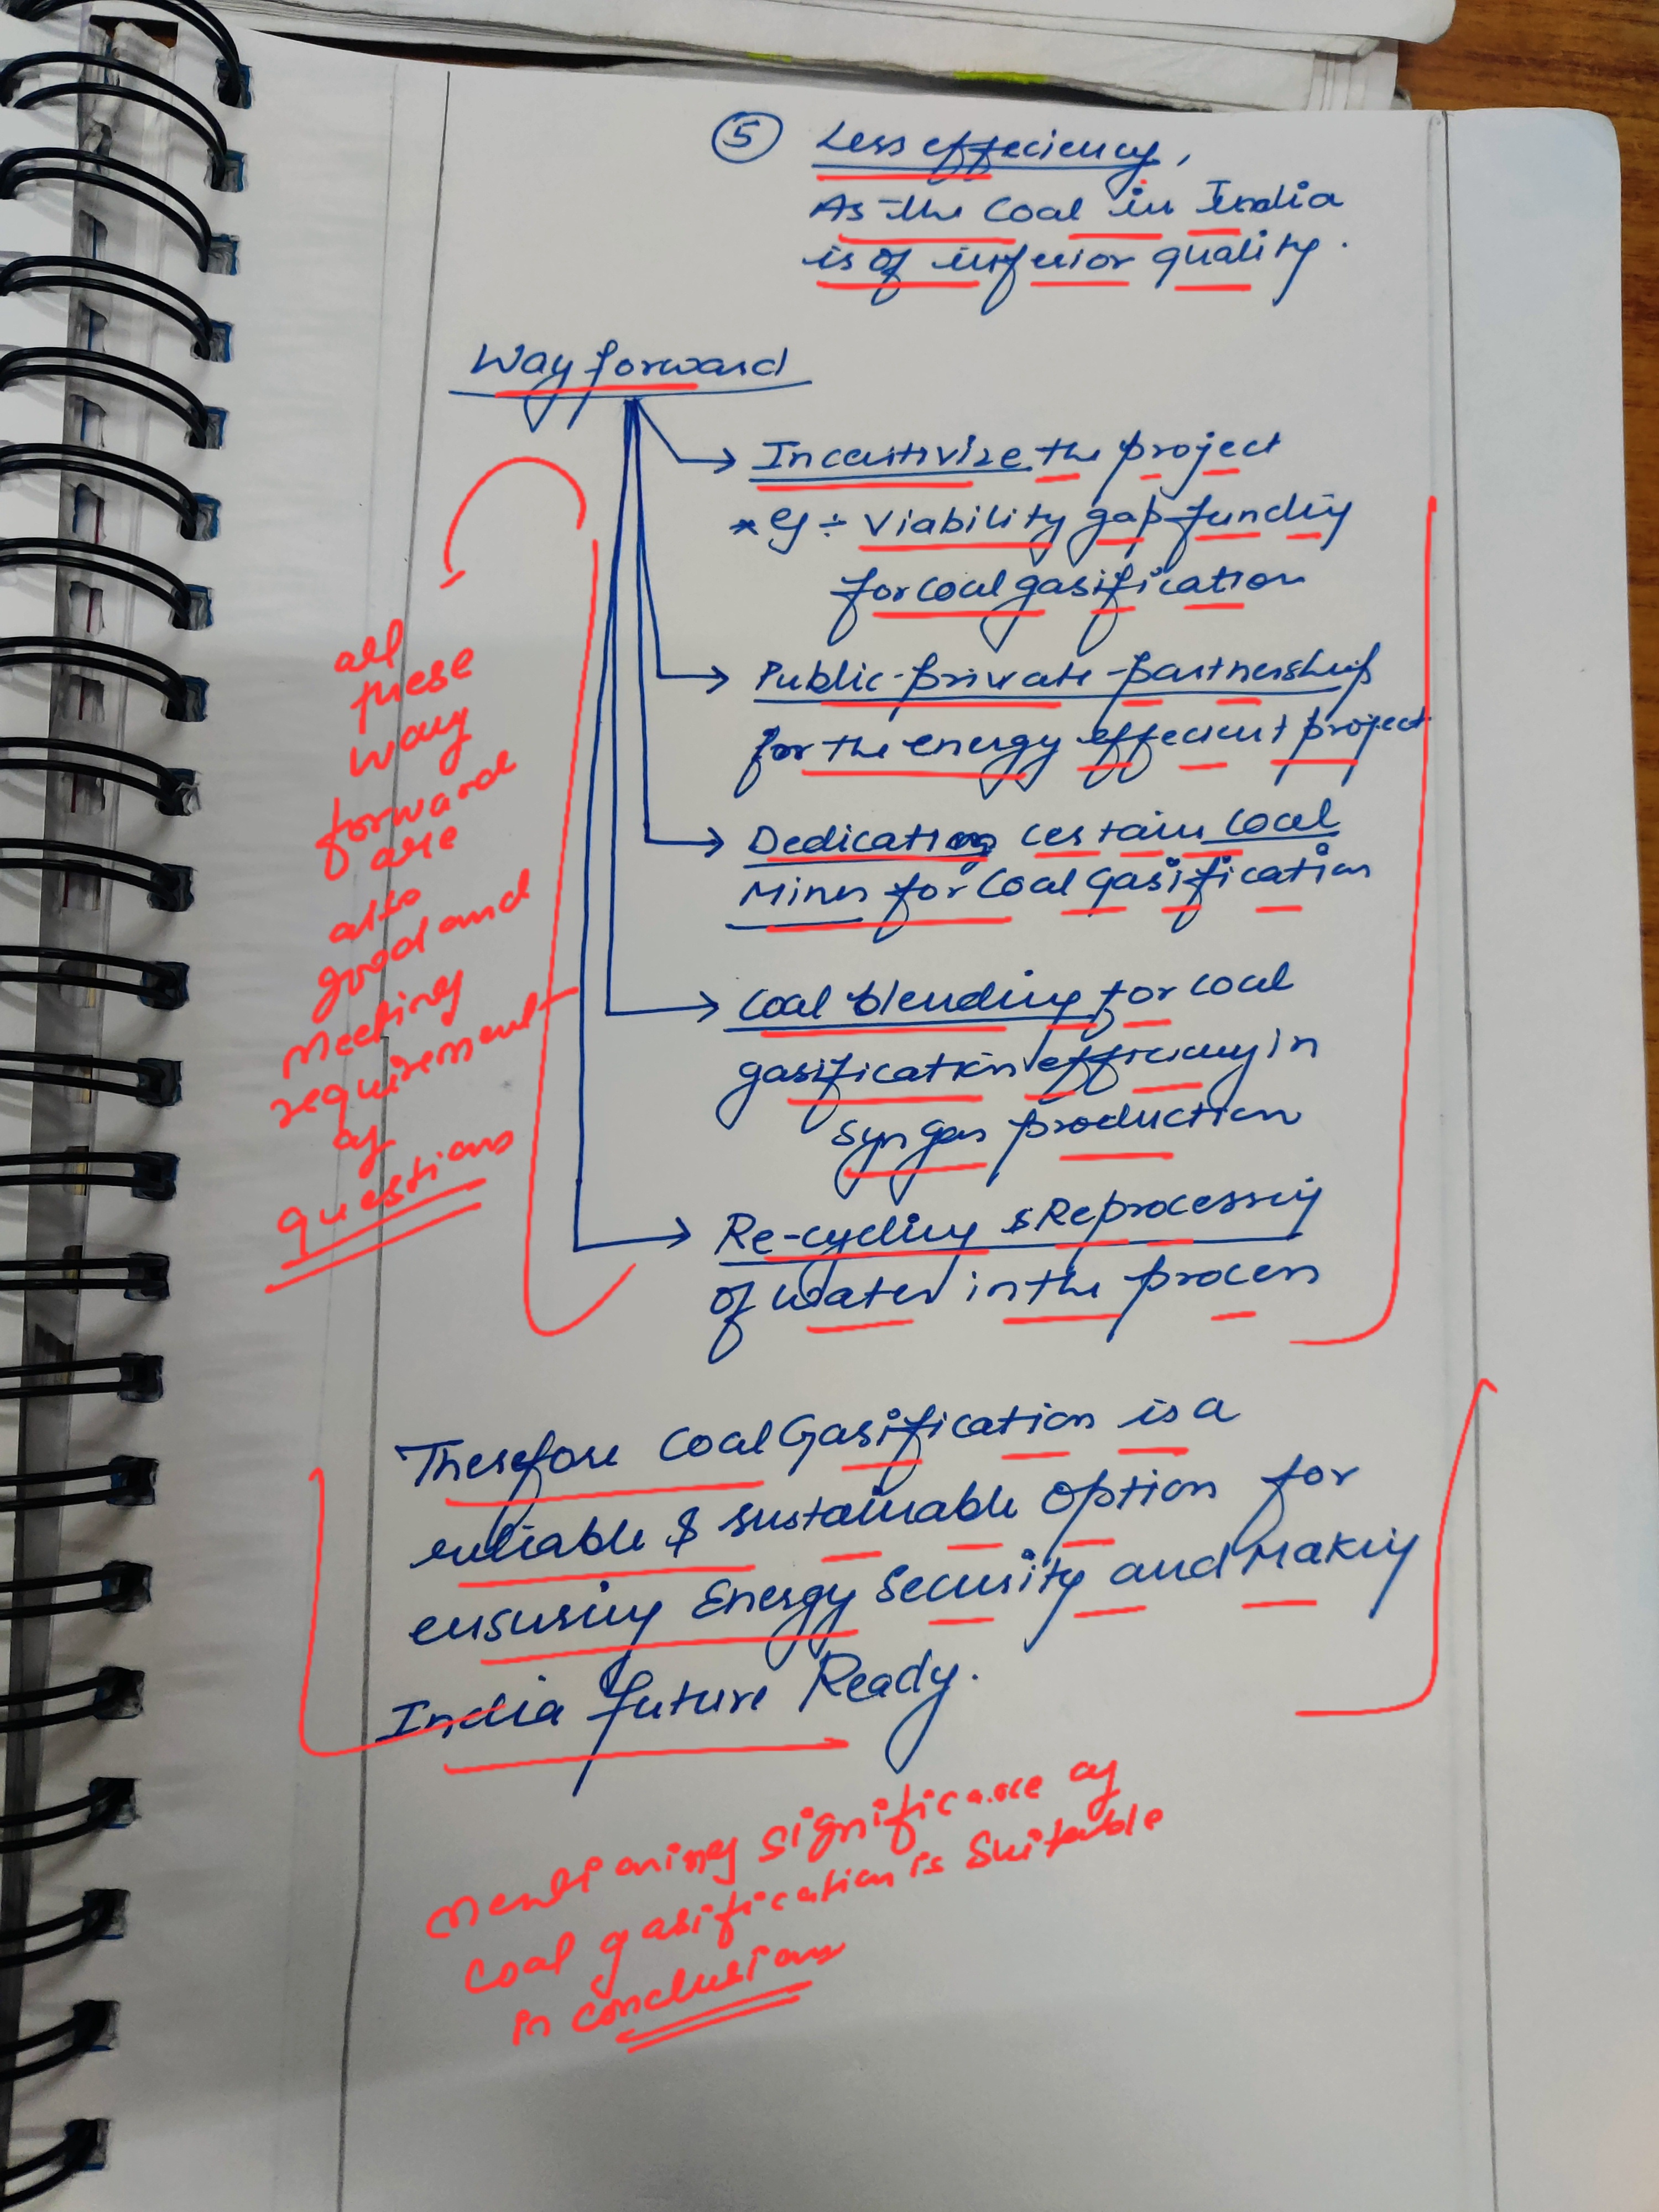 5 Less effeciency,
As the Coal in India
is of inferior quality.
Way forward
Incentivize the project
* eg ÷ Viability gap funding
for coal gasification
Public-private-partnership
for the energy effecient project
Dedicating certain Coal
Mines for Coal Gasification
Coal blending for coal
gasification efficiency in
syn gas production
Re-cycling & Reprocessing
of water in the process
all
these
way
forward
are
also
good and
meeting
requirement
of
questions
Therefore Coal Gasification is a
reliable & sustainable option for
ensuring Energy Security and Making
India future Ready.
Mentioning significance of
Coal gasification is Suitable
in conclusions